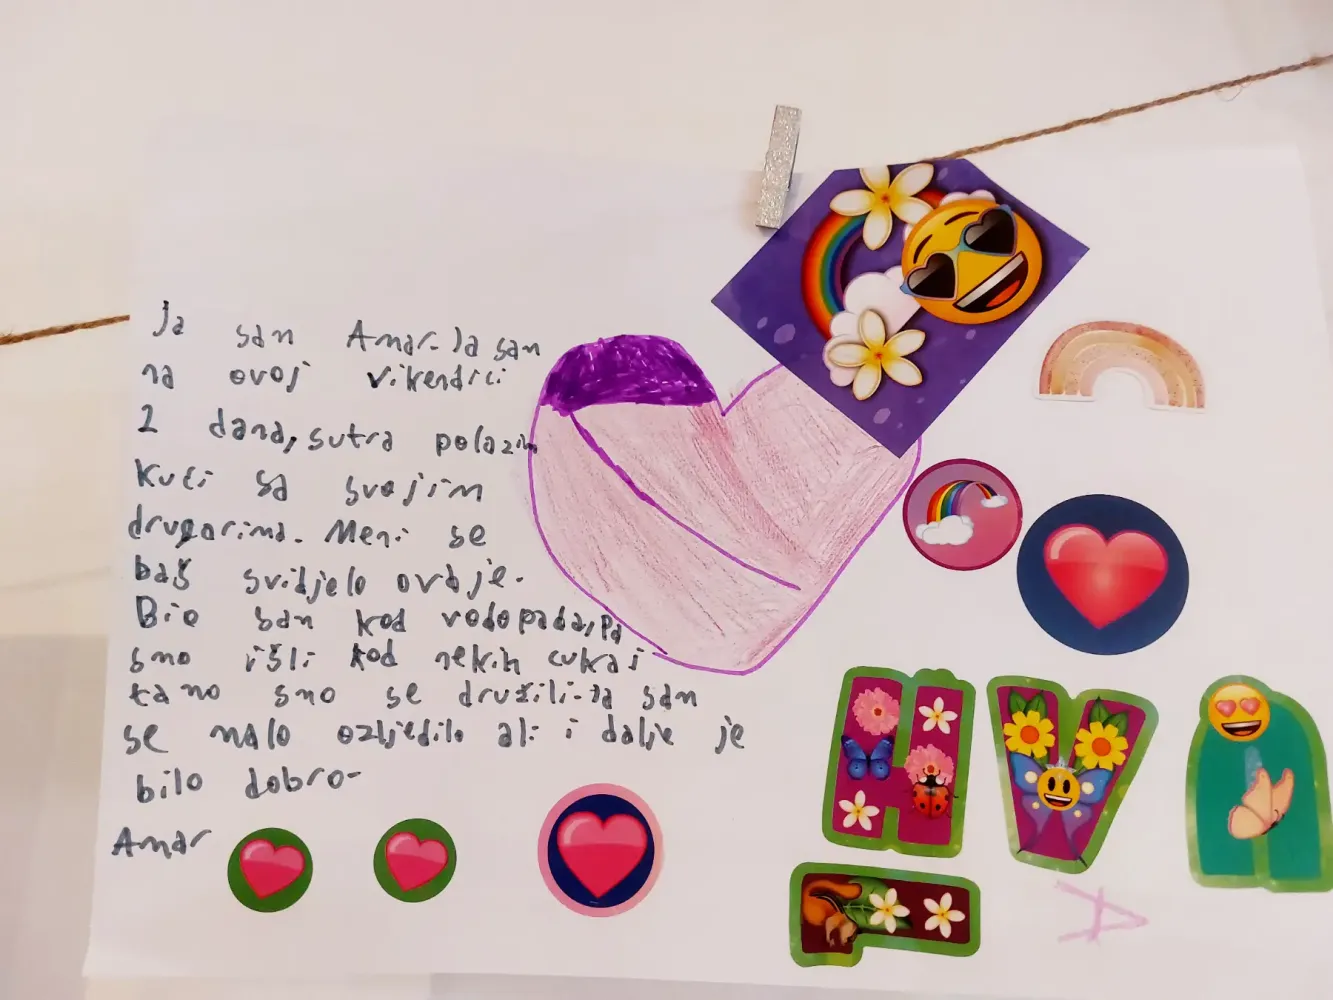 Ja sam Amar. Ja sam
na ovoj vikendici
2 dana, sutra polazim
kući sa svojim
drugarima. Meni se
baš svidjelo ovdje.
Bio sam kod vodopada, pa
smo išli kod nekih cuka i
tamo smo se družili. Ja sam
se malo ozljedilo ali i dalje je
bilo dobro.
Amar
H V A
L A